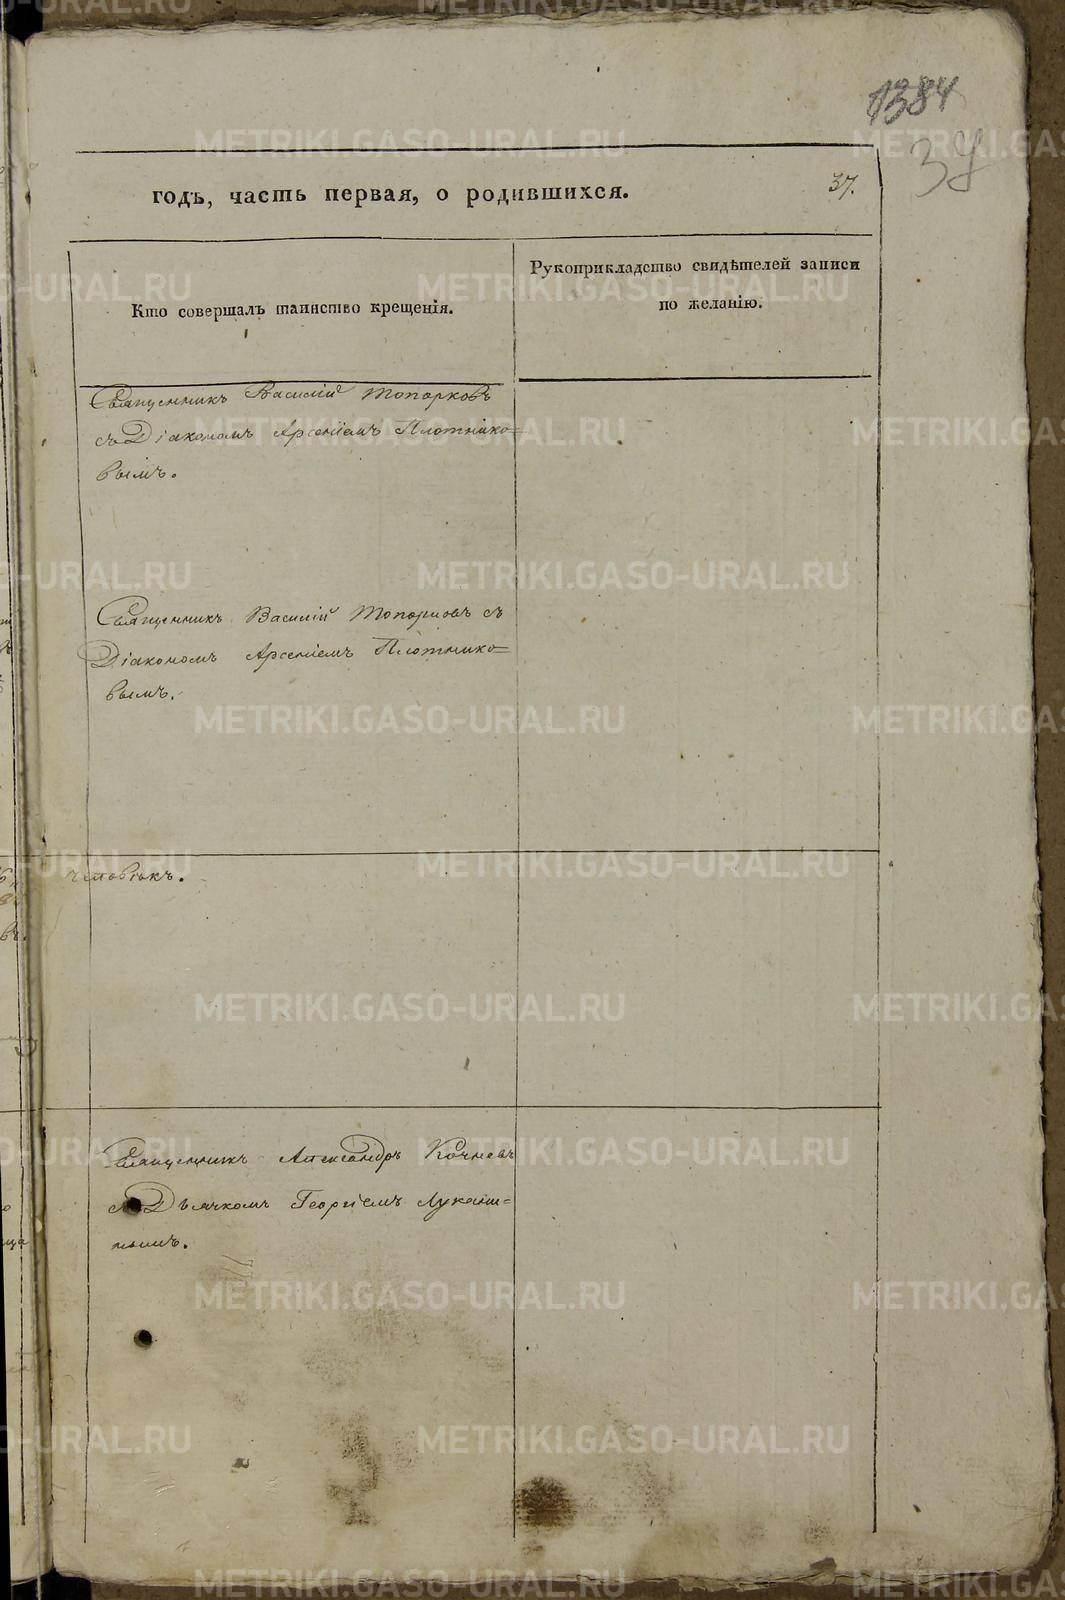 1384
37
годъ, часть первая, о родившихся.
37.
Кто совершалъ таинство крещенія.
Рукоприкладство свидѣтелей записи
по желанію.
Священникъ Василій Топорковъ
съ Діакономъ Арсеніемъ Плотнико=
вымъ.
Священникъ Василій Топорковъ съ
Діакономъ Арсеніемъ Плотнико=
вымъ.
человѣкъ.
Священникъ Александръ Кочневъ
съ Дьячкомъ Георгіемъ Лукани=
нымъ.
METRIKI.GASO-URAL.RU